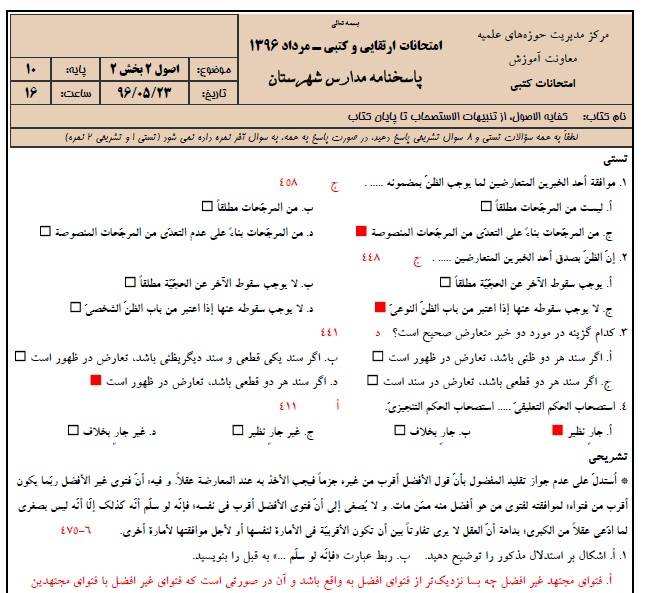 بسمه تعالی
مرکز مدیریت حوزه‌های علمیه
معاونت آموزش
امتحانات کتبی
امتحانات ارتقایی و کتبی ــ مرداد ۱۳۹۶
پاسخنامه مدارس شهرستان
موضوع: اصول ۲ بخش ۲ پایه: ۱۰
تاریخ: ۹۶/۰۵/۲۳ ساعت: ۱۶
نام کتاب: کفایه الاصول، از تنبیهات الاستصحاب تا پایان کتاب
لطفاً به همه سؤالات تستی و ۸ سوال تشریحی پاسخ دهید. در صورت پاسخ به همه، به سوال آخر نمره داده نمی شود (تستی ۱ و تشریحی ۲ نمره)
تستی
۱. موافقة أحد الخبرین المتعارضین لما یوجب الظنّ بمضمونه ..... . ج ۴۵۸
أ. لیست من المرجّحات مطلقاً □ ب. من المرجّحات مطلقاً □
ج. من المرجّحات بناءً علی التعدّی من المرجّحات المنصوصة ■ د. من المرجّحات بناءً علی عدم التعدّی من المرجّحات المنصوصة □
۲. إنّ الظنّ بصدق أحد الخبرین المتعارضین ..... . ج ۴۴۸
أ. یوجب سقوط الآخر عن الحجّیّة مطلقاً □ ب. لا یوجب سقوط الآخر عن الحجّیّة مطلقاً □
ج. لا یوجب سقوطه عنها إذا اعتبر من باب الظنّ النوعیّ ■ د. لا یوجب سقوطه عنها إذا اعتبر من باب الظنّ الشخصیّ □
۳. کدام گزینه در مورد دو خبر متعارض صحیح است؟ د ۴۴۱
أ. اگر سند هر دو ظنی باشد، تعارض در ظهور است □ ب. اگر سند یکی قطعی و سند دیگری‌ظنی باشد، تعارض در ظهور است □
ج. اگر سند هر دو قطعی باشد، تعارض در سند است □ د. اگر سند هر دو قطعی باشد، تعارض در ظهور است ■
۴. استصحاب الحکم التعلیقیّ ..... استصحاب الحکم التنجیزیّ. أ ۴۱۱
أ. جارٍ نظیر ■ ب. جارٍ بخلاف □ ج. غیر جارٍ نظیر □ د. غیر جارٍ بخلاف □
تشریحی
* أستدلّ علی عدم جواز تقلید المفضول بأنّ قول الأفضل أقرب من غیره جزماً فیجب الأخذ به عند المعارضة عقلاً. و فیه: أنّ فتوی غیر الأفضل ربّما یکون
أقرب من فتواه؛ لموافقته لفتوی من هو أفضل منه ممّن مات. و لا یُصغی إلی أنّ فتوی الأفضل أقرب فی نفسه؛ فإنّه لو سلّم أنّه کذلک إلّا أنّه لیس بصغری
لما ادّعی عقلاً من الکبری؛ بداهة أنّ العقل لا یری تفاوتاً بین أن تکون الأقربیّة فی الأمارة لنفسها أو لأجل موافقتها لأمارة أخری. ۶-۴۷۵
۱. أ. اشکال بر استدلال مذکور را توضیح دهید. ب. ربط عبارت «فإنّه لو سلّم ...» به قبل را بنویسید.
أ. فتوای مجتهد غیر افضل چه بسا نزدیک‌تر از فتوای افضل به واقع باشد و آن در صورتی است که فتوای غیر افضل با فتوای مجتهدین